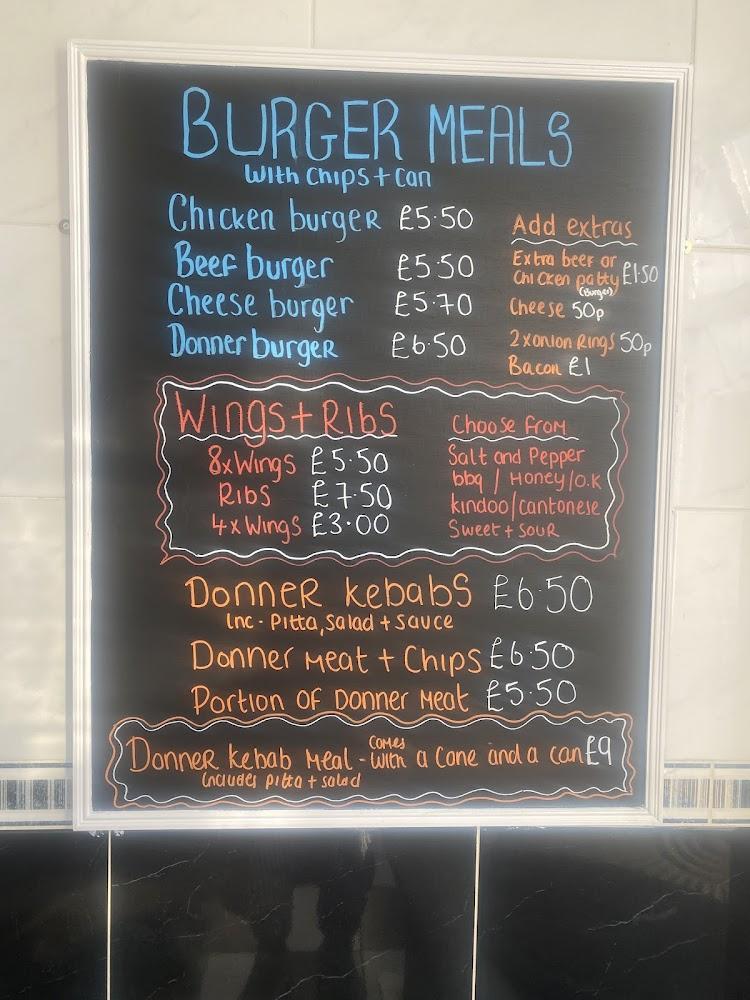 BURGER MEALS
With Chips + Can
Chicken burger £5.50
Beef burger £5.50
Cheese burger £5.70
Donner burger £6.50
Add extras
Extra beef or
Chicken patty £1.50
(Burger)
Cheese 50p
2 x onion Rings 50p
Bacon £1
Wings + Ribs
8x Wings £5.50
Ribs £7.50
4x Wings £3.00
Choose From
Salt and Pepper
bbq / Honey / O.K
kindoo/cantonese
Sweet + Sour
Donner Kebabs £6.50
Inc - Pitta, Salad + Sauce
Donner Meat + Chips £6.50
Portion Of Donner Meat £5.50
Donner Kebab Meal - Comes With a Cone and a can £9
Includes pitta + salad